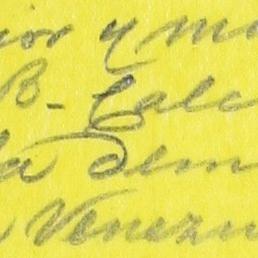 ior y m
B- Calc
la dem
Venezu